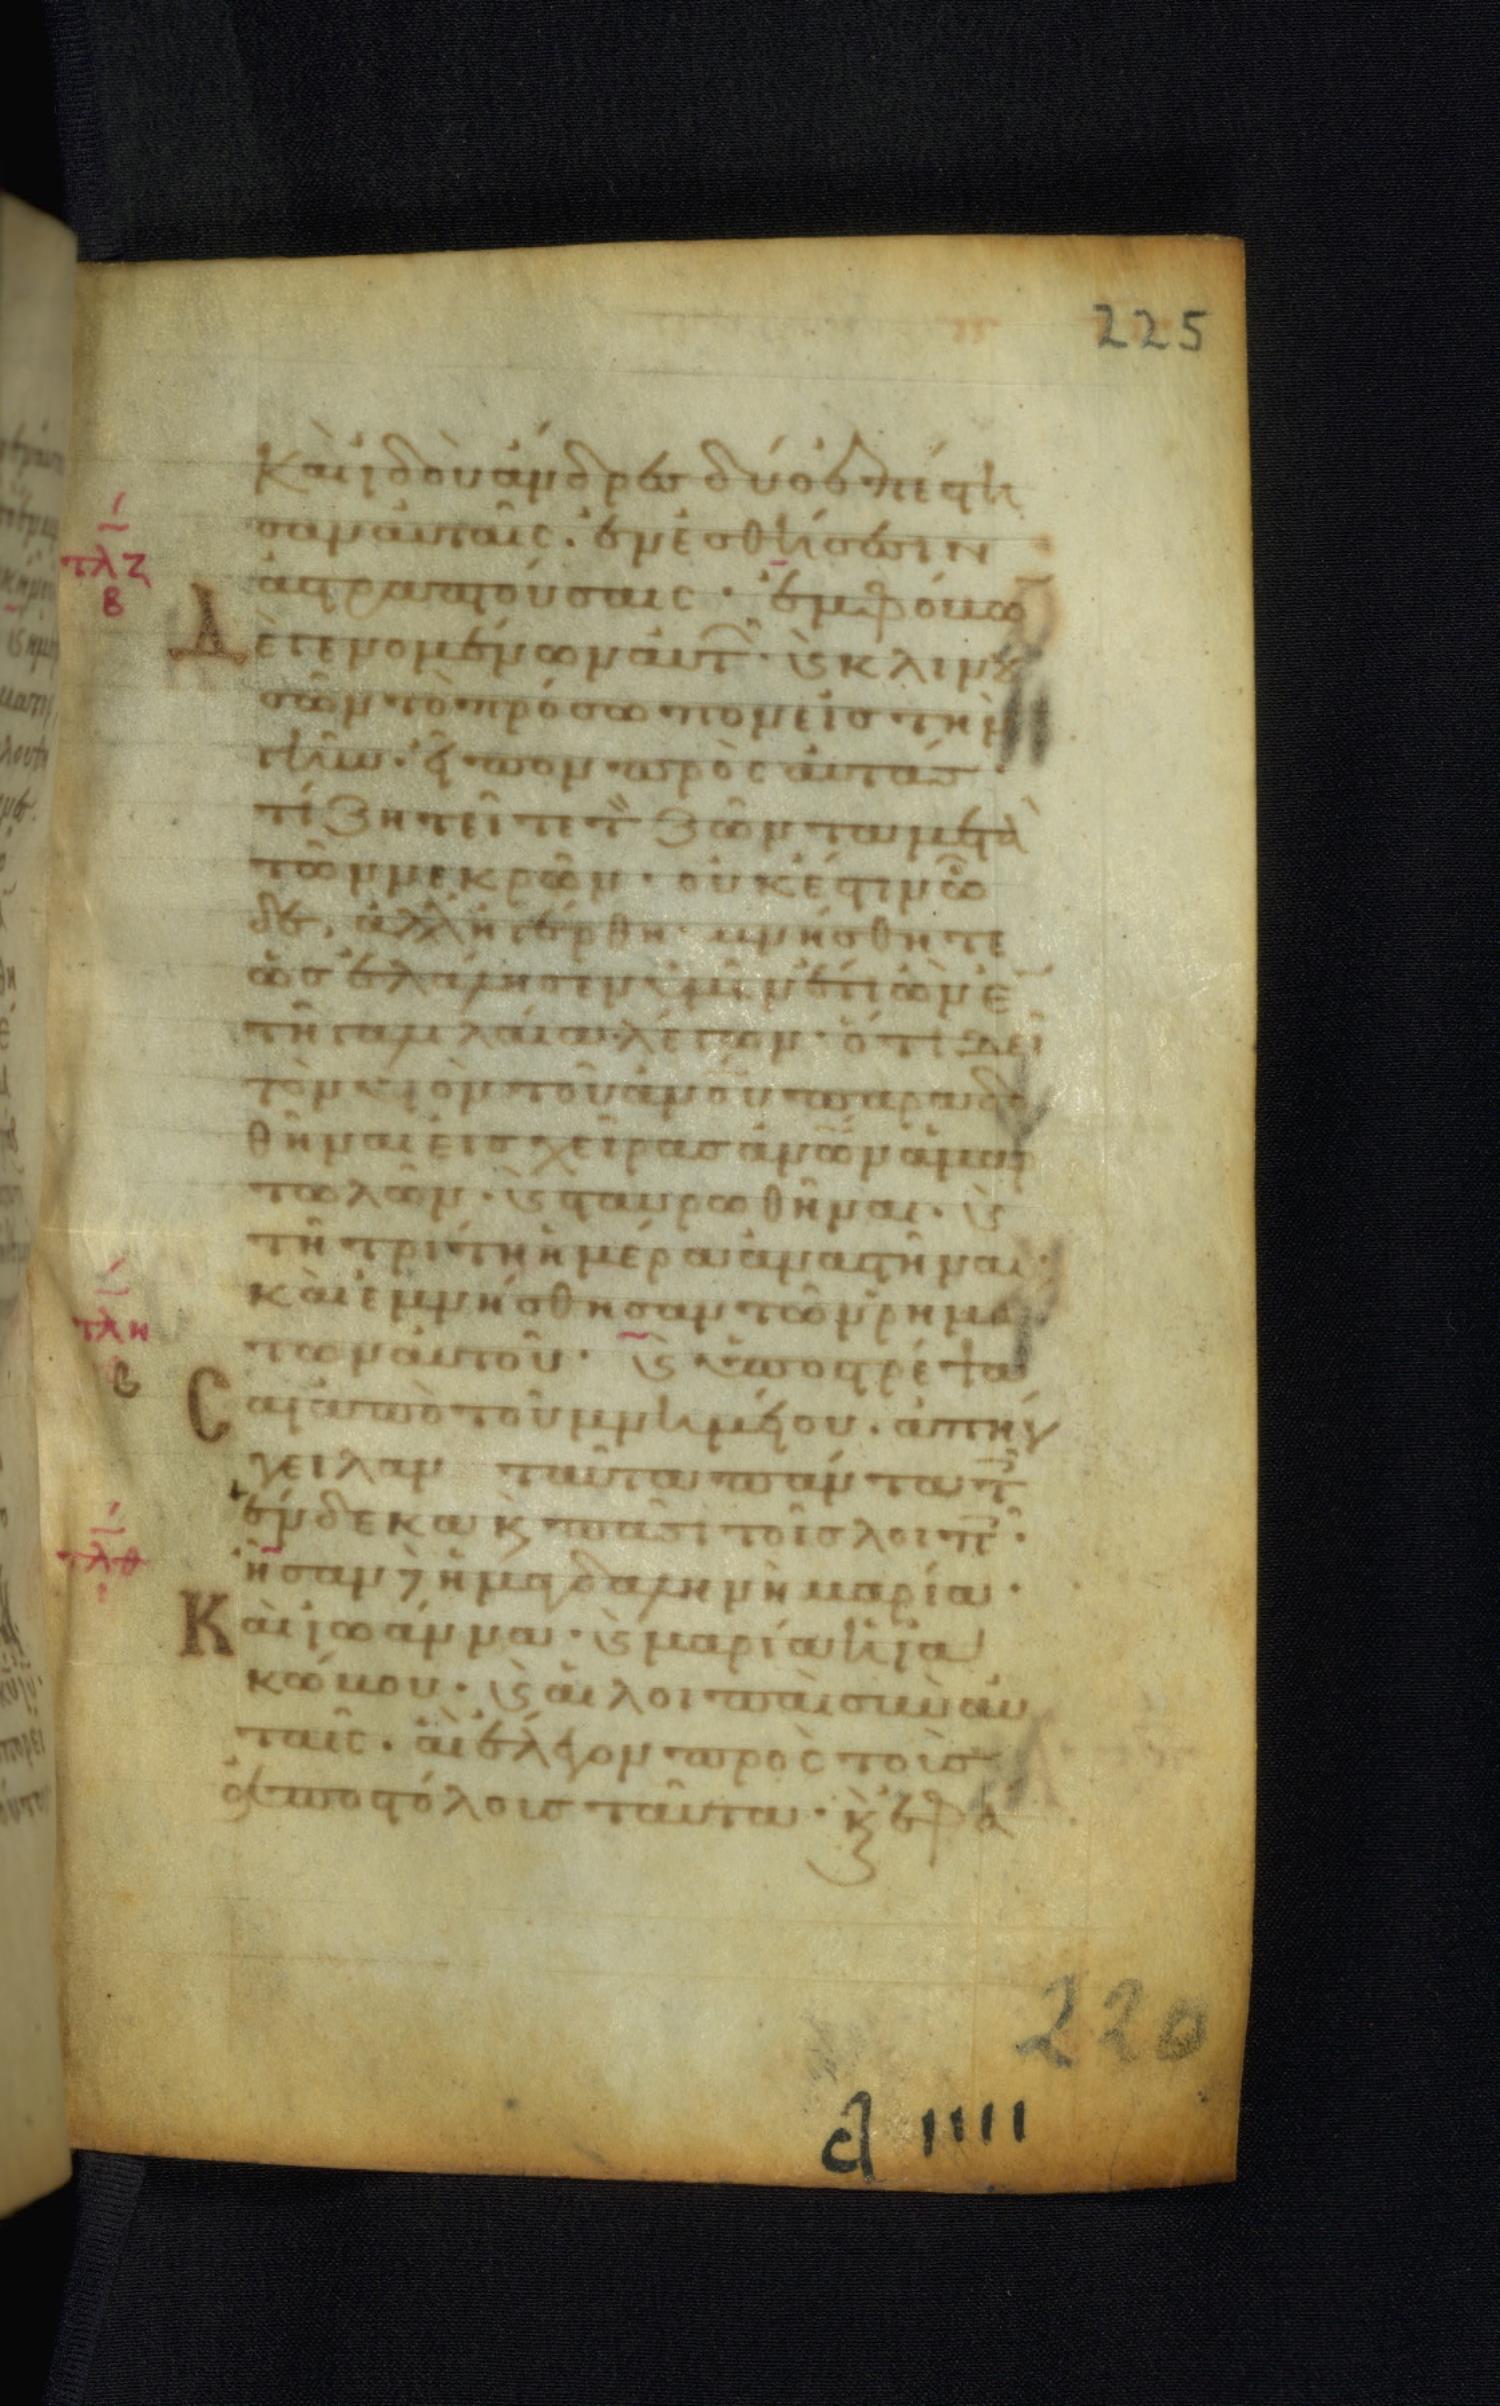 225
Καὶ ἰδοὺ ἄνδρες δύο ἐπέστη
σαν αὐταῖς. ἐν ἐσθήσεσιν
τλζ
β
ἀστραπτούσαις. ἐμφόβω
Δὲ γενομένων αὐτ. καὶ κλινου
σῶν τὸ πρόσωπον εἰς τὴν
γῆν. εἶπον πρὸς αὐτάς.
τί ζητεῖτε τ ζῶντα μετὰ
τῶν νεκρῶν. οὐκ ἔστιν ὧ
δε, ἀλλ ἠγέρθη. μνήσθητε
ὡς ἐλάλησεν ὑμῖν ἔτι ὢν ἐ
τῆ γαλιλαία λέγων. ὅτι δεῖ
τὸν υἱὸν τοῦ ἀνου παραδο
θῆναι εἰς χεῖρας ἀνων ἁμαρ
τωλῶν. καὶ σταυρωθῆναι. καὶ
τῆ τρίτη ἡμέρα ἀναστῆναι.
καὶ ἐμνήσθησαν τῶν ρημά
τλη
β
των αὐτοῦ. καὶ ὑποστρέψα
Σαι ἀπὸ τοῦ μνημείου. ἀπήγ
γειλαν ταῦτα πάντα τ
ἕνδεκα κ πᾶσι τοῖς λοιπ.
τλθ
ι
ἦσαν δὲ ἡ μαγδαληνὴ μαρία.
Καὶ ἰωάννα. καὶ μαρία ἡ ἰα
κώβου. καὶ αἱ λοιπαὶ σὺν αὐ
ταῖς. αἳ ἔλεγον πρὸς τοὺς
ἀποστόλους ταῦτα. κ ἐφά
220